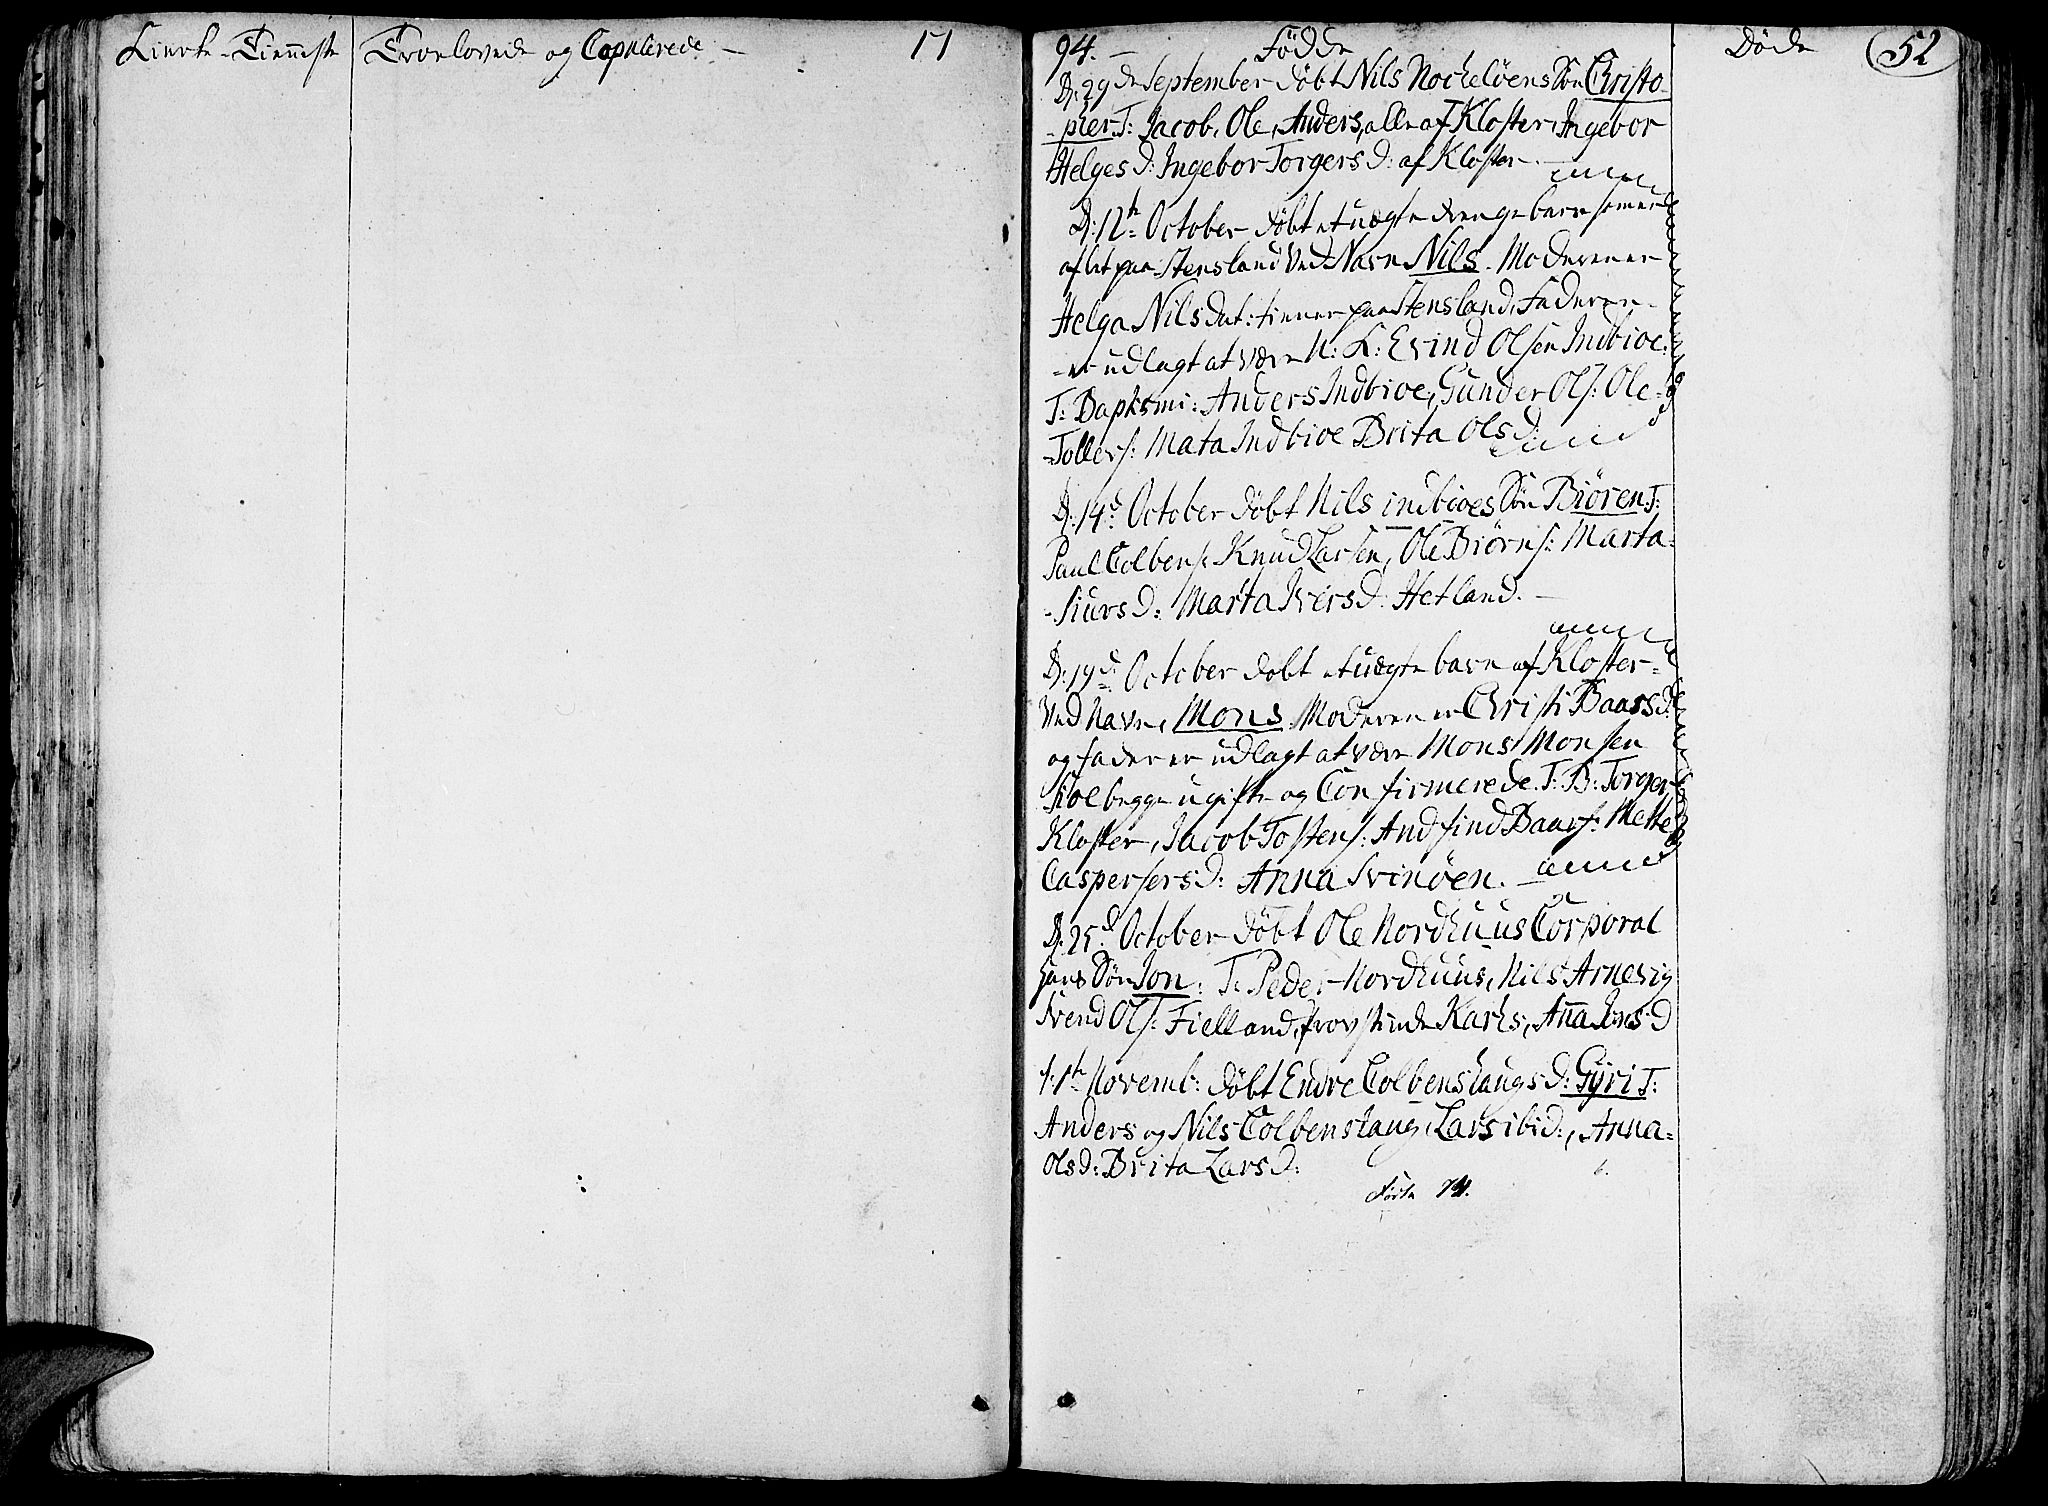 Kierke-Tienniste
Trolovede og Copulerede
17
94. Fødde
Døde
52
D: 29de September døbt Nils Nockeløens Søn Christo-
-pher T: Jacob, Ole, Anders, alle af Kloster, Ingebor
Helges D: Ingebor Torgers D: af Kloster
D: 12te October døbt et uægte drenge barn som er
aflet paa Stensland Ved Navn Nils. Moderen er
Helga Nils Dat: tienner paa Stensland, Faderen
er udlagt at være N: K: Evind Olsen Indbioe:
T: Baptismi: Anders Indbioe, Gunder Ols: Ole
Tollers: Mata Indbioe Brita Olsd:
D: 14d October døbt Nils indbioes Søn Biøren T:
Paul Colbens: Knud Larsen, Ole Biørns: Marta
Siurs D: Marta Ivers D: Hetland.
D: 19d October døbt et uægte barn af Kloster
Ved Navn, Mons. Moderen er Christi Baars D:
og fader er udlagt at være Mons Monsen
begge ugifte og Confirmerede. T: B: Torger
Kloster, Jacob Tostens: Andfind Baars: Mette
Caspersers D: Anna Svinøen.
D: 25d October døbt Ole Nordhuus Corporal
hans Søn Jon: T: Peder Nordhuus, Nils Arnevig
Svend Ols: Fielland, Karhs, Anna Jons D
1te Novemb: døbt Endre Colbenshaugs D: Gyri T:
Anders og Nils Colbenshaug, Lars ibid:, Anna
Ols D: Brita Lars D: